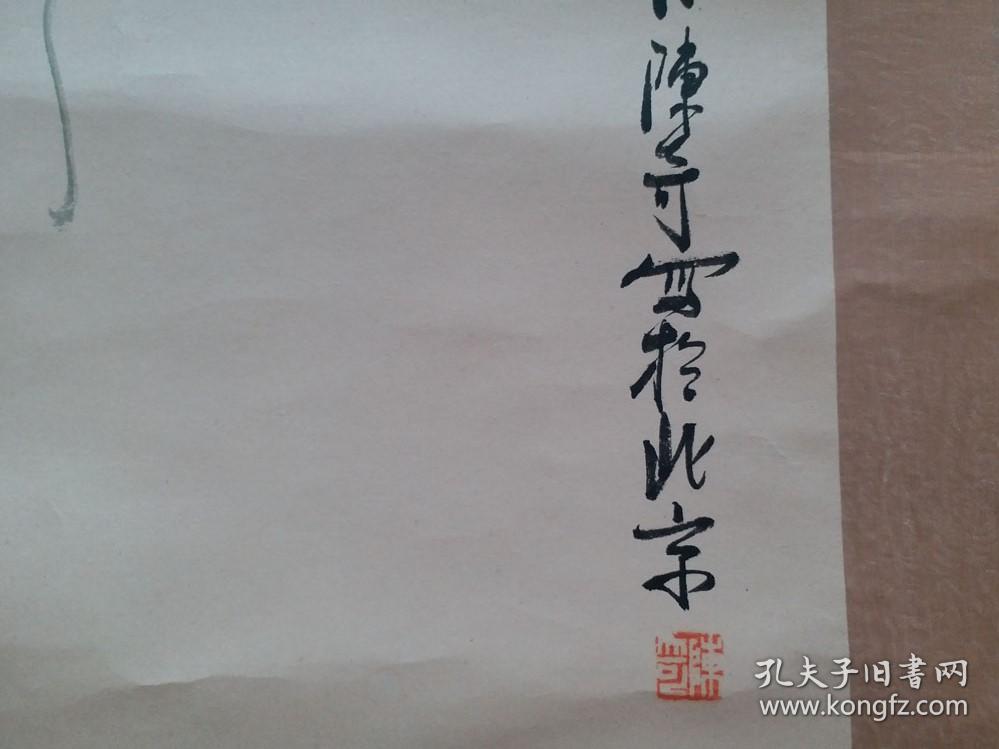 陳奇寫於北京
陳奇
孔夫子旧書网
www.kongfz.com